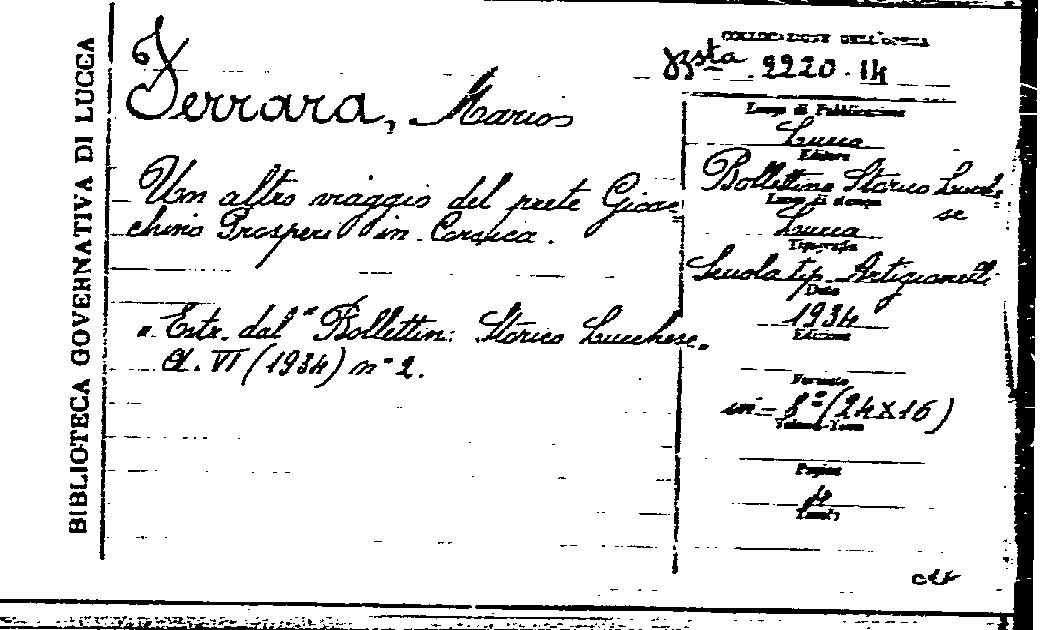 BIBLIOTECA GOVERNATIVA DI LUCCA
Ferrara, Mario
Un altro viaggio del prete Gioac=
chino Prosperi in Corsica.
" Estr. dal " Bollettin: Storico Lucchese.
A. VI (1934) n° 2.
COLLOCAZIONE DELL'OPERA
Bsta 2220.14
Luogo di Pubblicazione
Lucca
Editore
Bollettino Storico Lucche=
se
Luogo di stampa
Lucca
Tipografia
Scuola tip. Artigianelli
Data
1934
Edizione
Formato
in-8° (24x16)
Volume-Tomo
Pagine